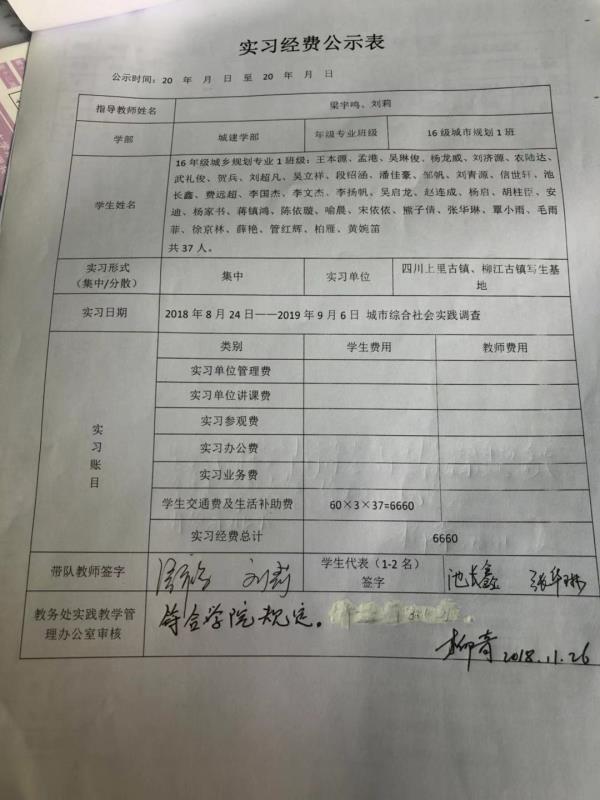 实习经费公示表
公示时间：20 年 月 日 至 20 年 月 日
指导教师姓名 梁宇鸣、刘莉
学部 城建学部 年级专业班级 16级城市规划1班
学生姓名
16年级城乡规划专业1班级：王本源、孟港、吴琳俊、杨龙威、刘济源、农陆达、
武礼俊、贺兵、刘超凡、吴立祥、段绍涵、潘佳豪、邹帆、刘青源、信世轩、池
长鑫、费远超、李国杰、李文杰、李扬帆、吴启龙、赵连成、杨启、胡柱臣、安
迪、杨家书、蒋镇鸿、陈依璇、喻晨、宋依依、熊子倩、张华琳、覃小雨、毛雨
菲、徐京林、薛艳、管红辉、柏雁、黄婉笛
共 37 人。
实习形式
（集中/分散）
集中
实习单位
四川上里古镇、柳江古镇写生基
地
实习日期 2018年8月24日——2019年9月6日 城市综合社会实践调查
实习账目
类别 学生费用 教师费用
实习单位管理费
实习单位讲课费
实习参观费
实习办公费
实习业务费
学生交通费及生活补助费 60×3×37=6660
实习经费总计 6660
带队教师签字 刘莉
学生代表（1-2名）
签字
池长鑫 张华琳
教务处实践教学管
理办公室审核
符合学院规定。
柳青 2018.11.26